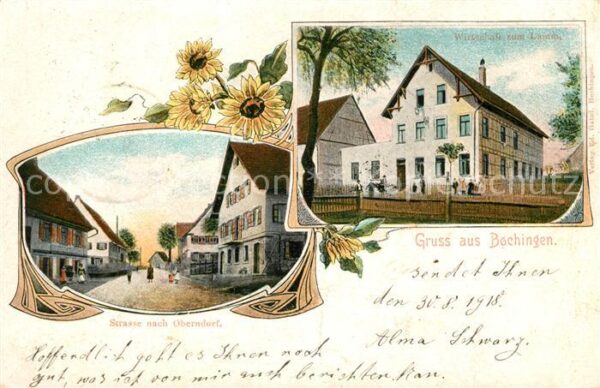 Wirtschaft zum Lamm.
Gruss aus Bochingen.
Strasse nach Oberndorf.
sendet Ihnen
den 30.8. 1918.
Alma Schwarz.
Hoffendlich geht es Ihnen noch
gut, was ich von mir auch berichten kan.